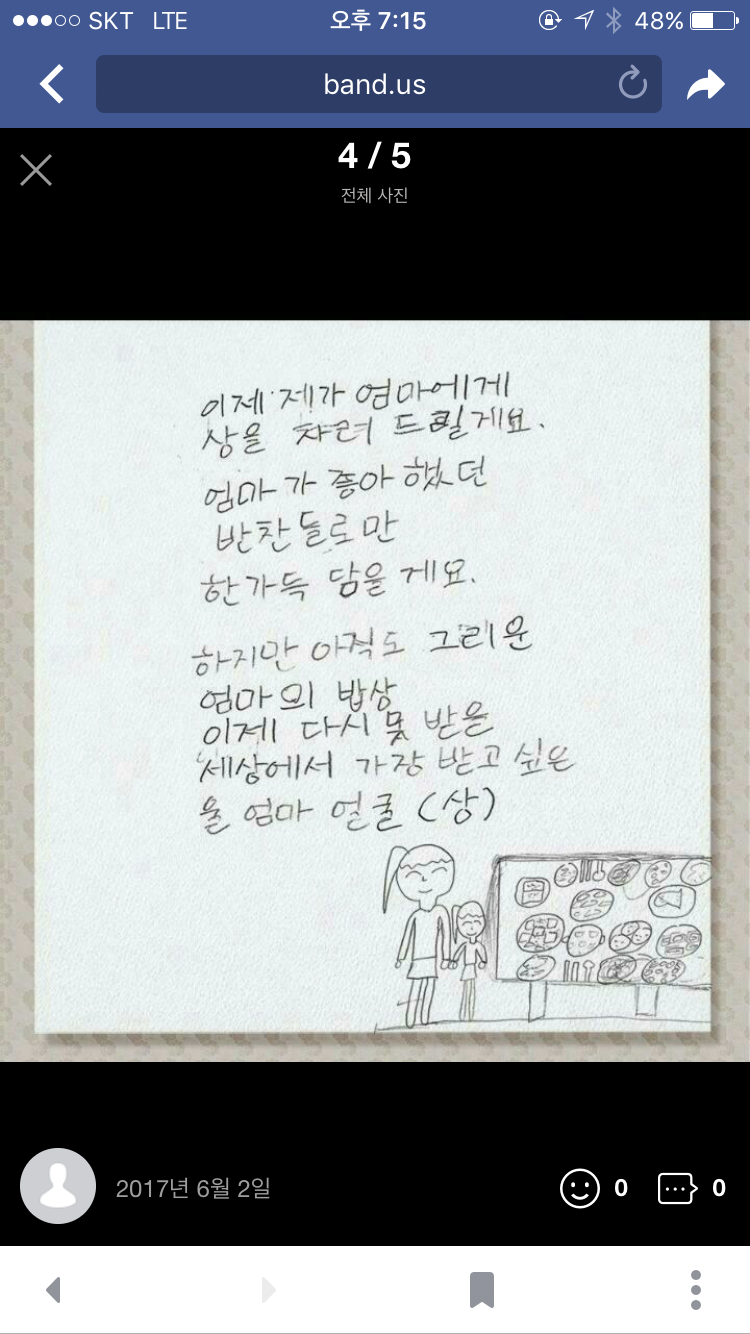 SKT LTE 오후 7:15 48%
band.us
4 / 5
전체 사진
이제 제가 엄마에게
상을 차려 드릴게요.
엄마가 좋아했던
반찬들로만
한가득 담을게요.
하지만 아직도 그리운
엄마의 밥상
이제 다시 못 받을
세상에서 가장 받고 싶은
울 엄마 얼굴 (상)
2017년 6월 2일
0 0